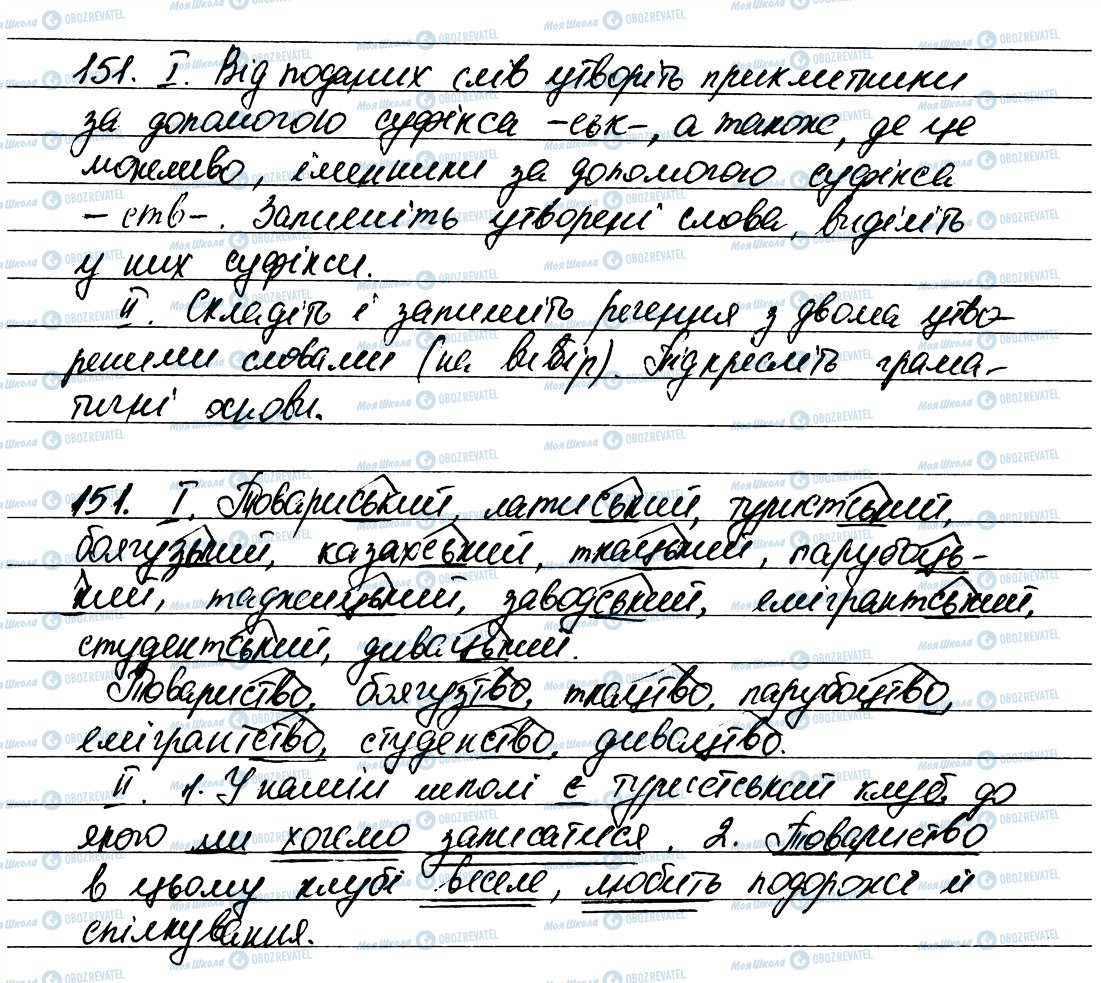 151. І. Від поданих слів утворіть прикметники
за допомогою суфікса -ськ-, а також, де це
можливо, іменники за допомогою суфікса
-ств-. Запишіть утворені слова, виділіть
у них суфікси.
ІІ. Складіть і запишіть речення з двома утво-
реними словами (на вибір). Підкресліть грама-
тичні основи.
151. І. Товариський, латиський, туристський,
боягузький, казахський, ткацький, парубоць-
кий, таджицький, заводський, емігрантський,
студентський, дивацький.
Товариство, боягузтво, ткацтво, парубоцтво,
емігрантство, студенство, дивацтво.
ІІ. 1. У нашій школі є турістський клуб, до
якого ми хочемо записатися. 2. Товариство
в цьому клубі веселе, любить подорожі й
спілкування.